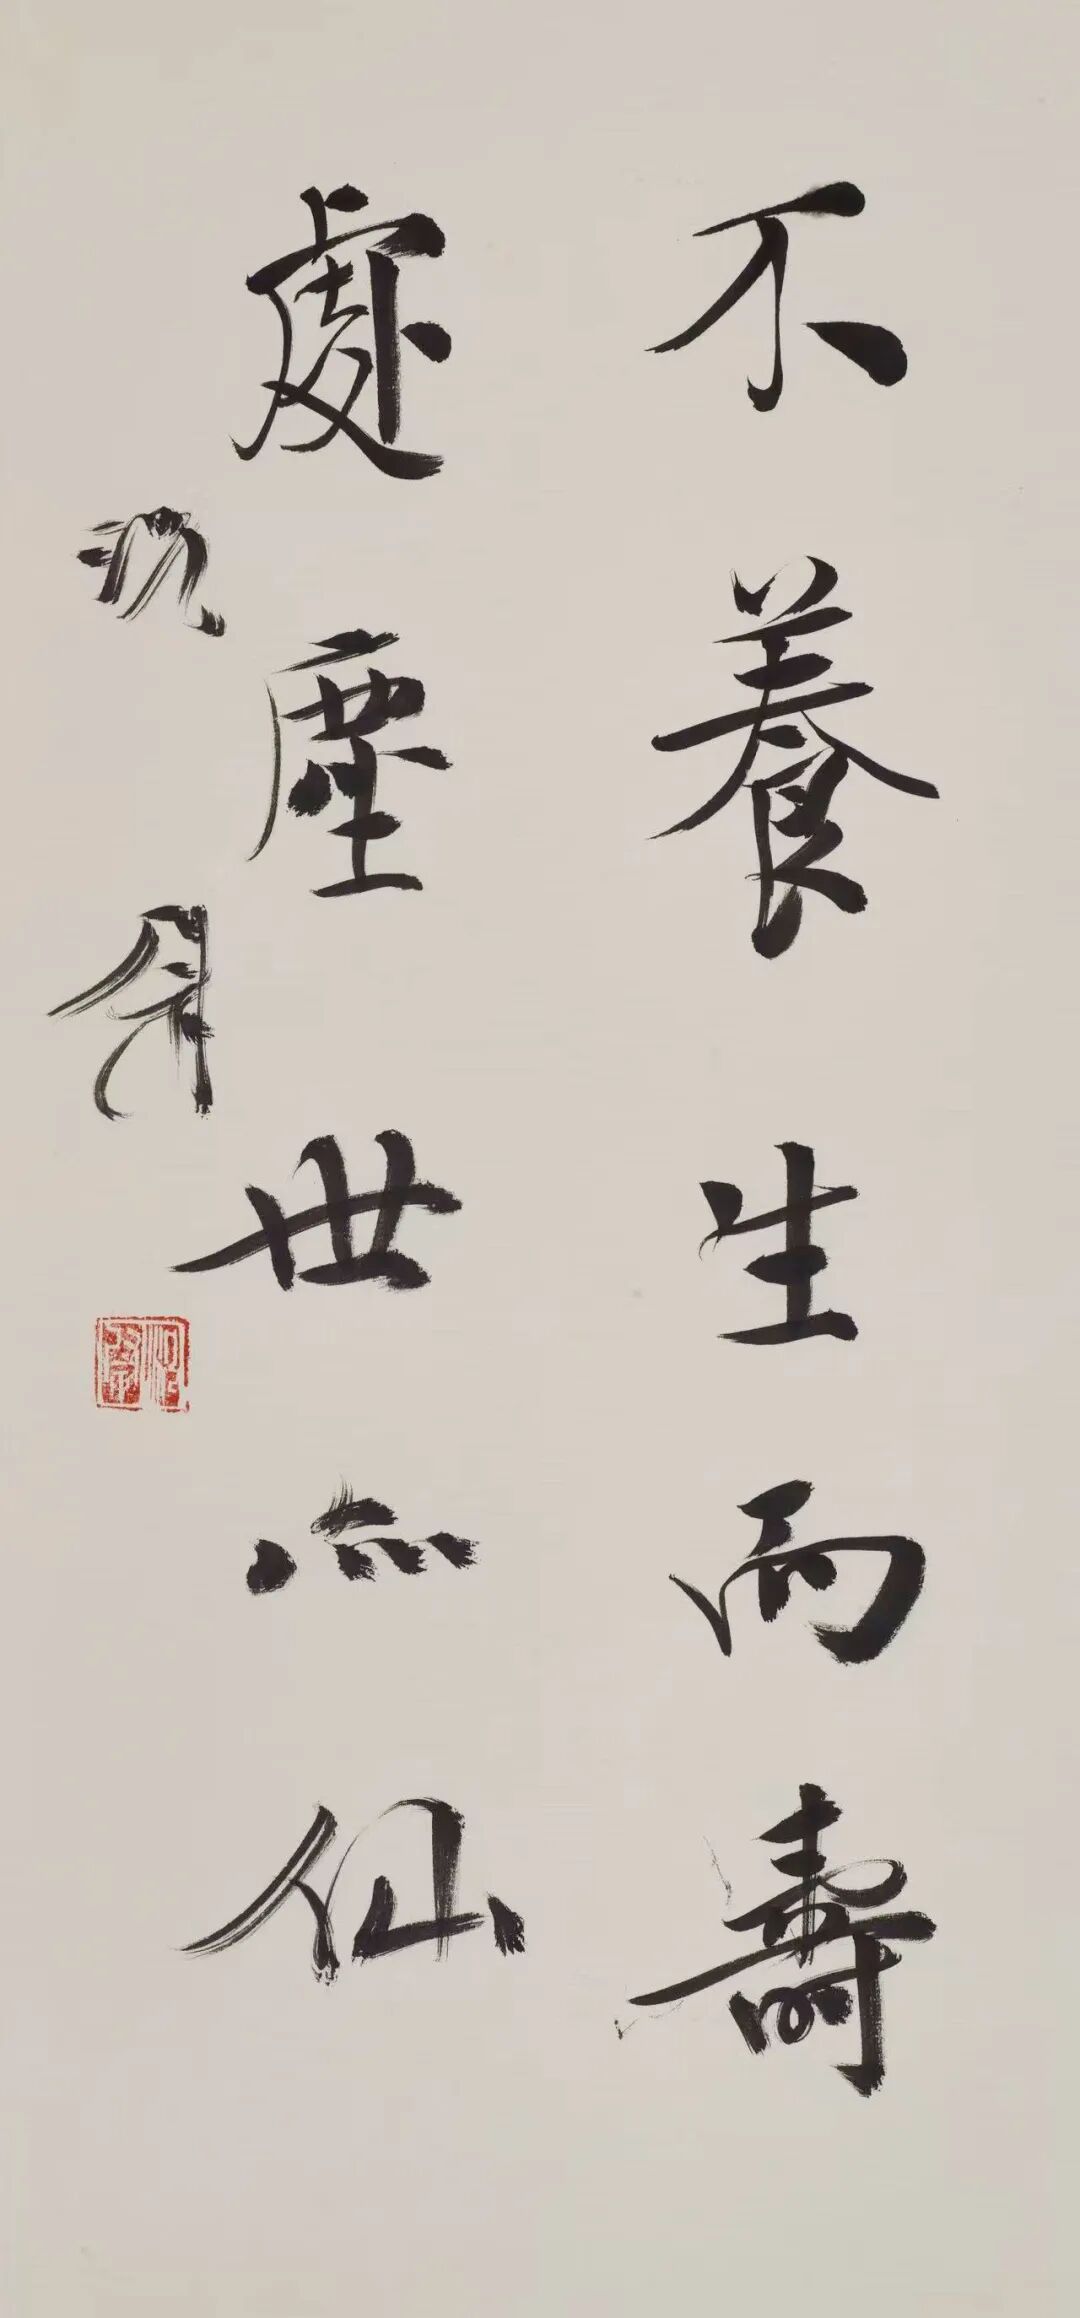 不養生而壽
處塵世亦仙